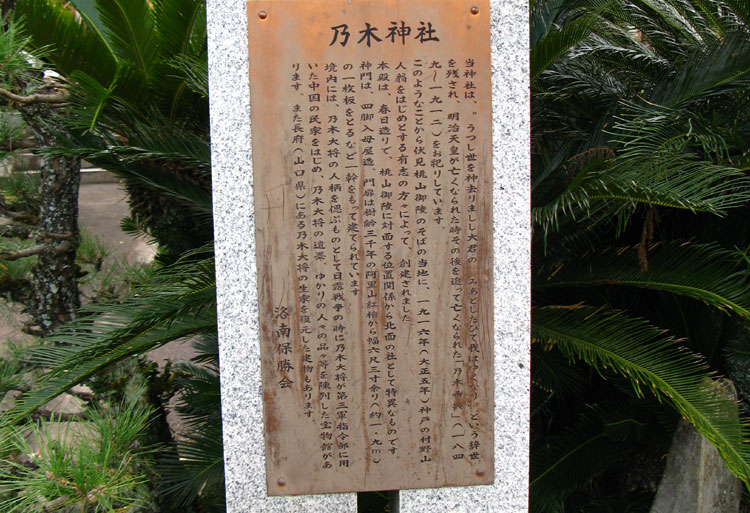 乃木神社
当神社は、“うつし世を神去りましし大君の みあとしたひて我はゆくなり”という辞世
を残され、明治天皇が亡くなられた時その後を追って亡くなられた「乃木希典」(一八四
九〜一九一二)をお祀りしています。
このようなことから伏見桃山御陵のそばの当地に、一九一六年(大正五年)神戸の村野山
人翁をはじめとする有志の方々によって、創建されました。
本殿は、春日造りで、桃山御陵に対面する位置関係から北面の社として特異なものです。
神門は、四脚入母屋造、門扉は樹齢三千年の阿里山紅檜から幅六尺三寸余り(約一・九m)
の一枚板をとるなど一幹をもって建てられています
境内には、乃木大将の人柄を偲ぶものとして日露戦争の時に乃木大将が第三軍指令部に用
いた中国の民家をはじめ、乃木大将の遺墨、ゆかりの人々の品々等を陳列した宝物館があ
ります。また長府(山口県)にある乃木大将の生家を復元した建物もあります。
洛南保勝会